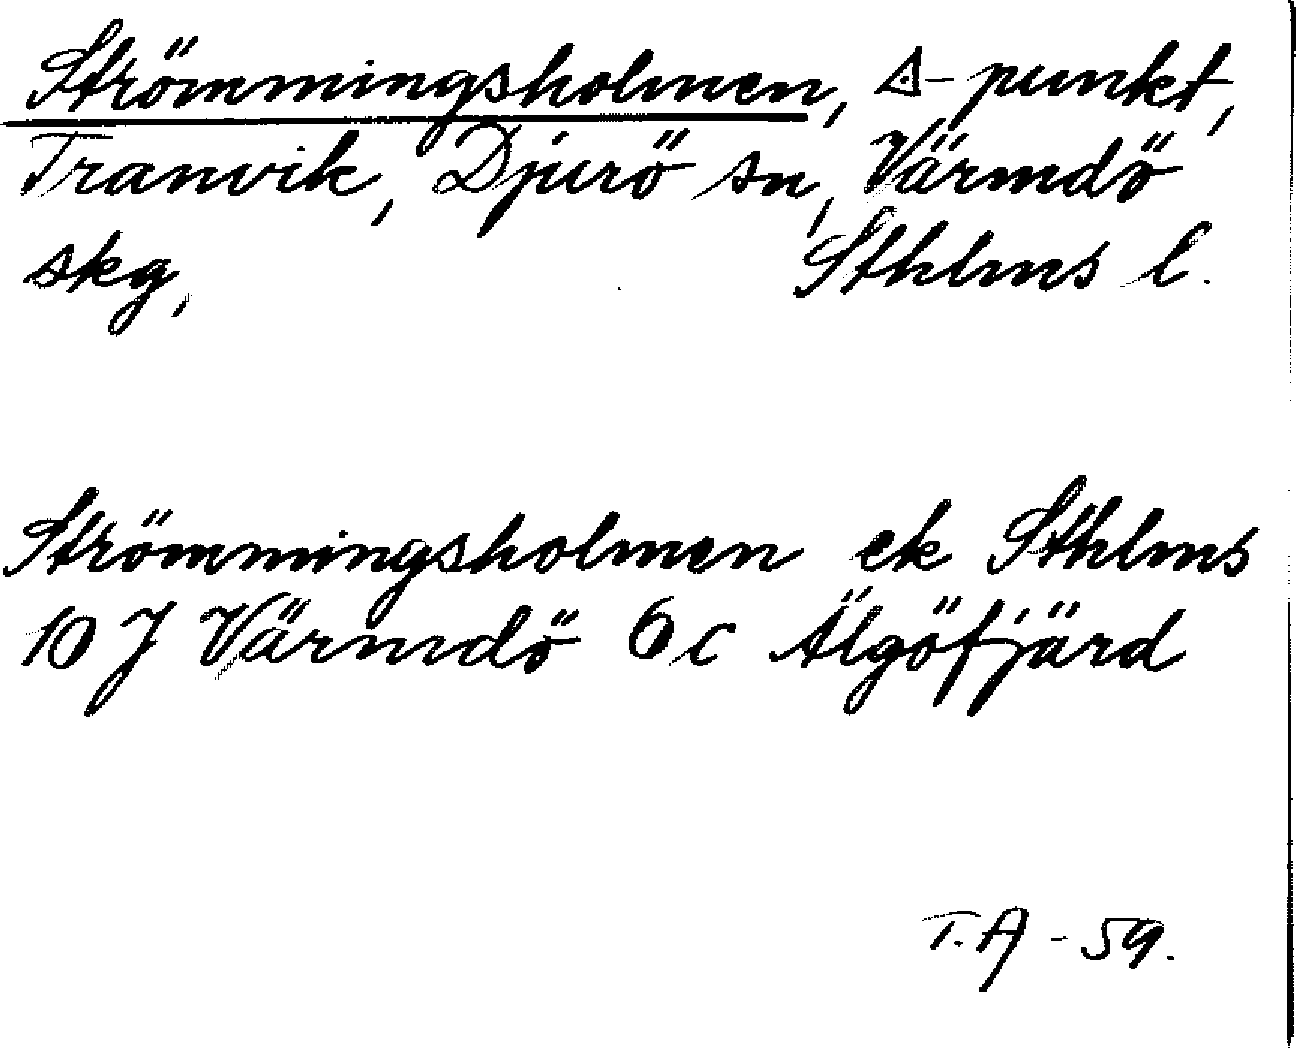 Strömmingsholmen, △-punkt,
Tranvik, Djurö sn, Värmdö
skg, Sthlms l.
Strömmingsholmen ek Sthlms
10 J Värmdö 6c Älgöfjärd
T.A - 59.